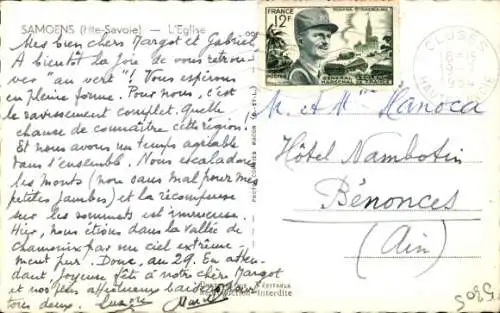 SAMOENS (Hte-Savoie) — L'Eglise
Mes bien chers Margot et Gabriel,
A bientôt la joie de vous retrou-
ver "au vert"! Vous espérons
en pleine forme. Pour nous, c'est
le ravissement complet. Quelle
chance de connaître cette région!
Et nous avons un temps agréable
dans l'ensemble. Nous escaladons
les monts (non sans mal pour mes
petites jambes) et la récompense
sur les sommets est immense.
Hier, nous étions dans la vallée de
Chamonix par un ciel extrême-
ment pur. Donc, au 29. En atten-
dant joyeuse fête à notre chère Margot
et nos plus affectueux baisers pour
tous deux.
FRANCE
12F
POSTES
GÉNÉRAL LECLERC
MARÉCHAL DE FRANCE
CLUSES
M. et Mme Hanoca
Hôtel Nambotin
Bénonces
(Ain)
Reproduction interdite